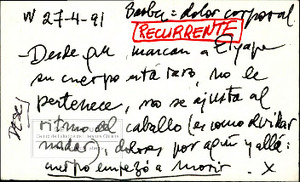 W 27-4-91 Barbey = dolor corporal
RECURRENTE
- Desde que marcan a Eyape
su cuerpo está raro, no le
pertenece, no se ajusta al
DESE/
ritmo del caballo (es como olvidar
nadar), dolores por aquí y allá:
cuerpo empezó a morir. X